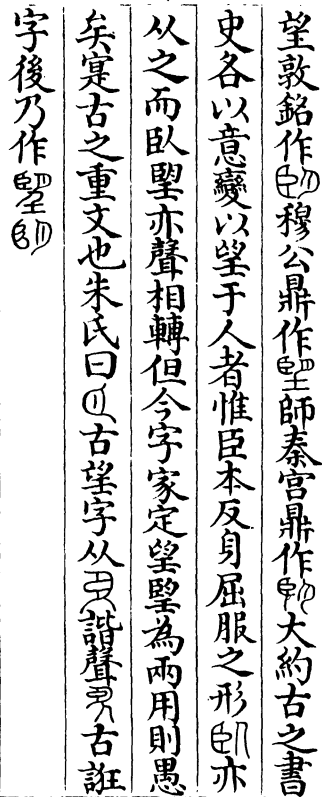 望敦銘作穆公鼎作師秦宫鼎作大約古之書
史各以意變以望于人者惟臣本反身屈服之形亦
从之而臥朢亦聲相轉但今字家定望朢為兩用則愚
矣寔古之重文也朱氏曰古望字从諧聲古誑
字後乃作